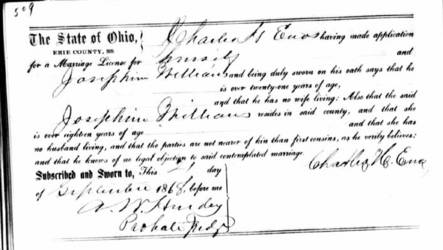 509
The State of Ohio,
ERIE COUNTY, SS.
Charles H Enos having made application
for a Marriage License for himself and
Josephine Williams and being duly sworn on his oath says that he
is over twenty-one years of age,
and that he has no wife living; Also that the said
Josephine Williams resides in said county, and that she
is over eighteen years of age and that she has
no husband living, and that the parties are not nearer of kin than first cousins, as he verily believes:
and that he knows of no legal objection to said contemplated marriage.
Charles H. Enos
Subscribed and Sworn to, This day
of September 1868, before me
A. W.
Probate Judge